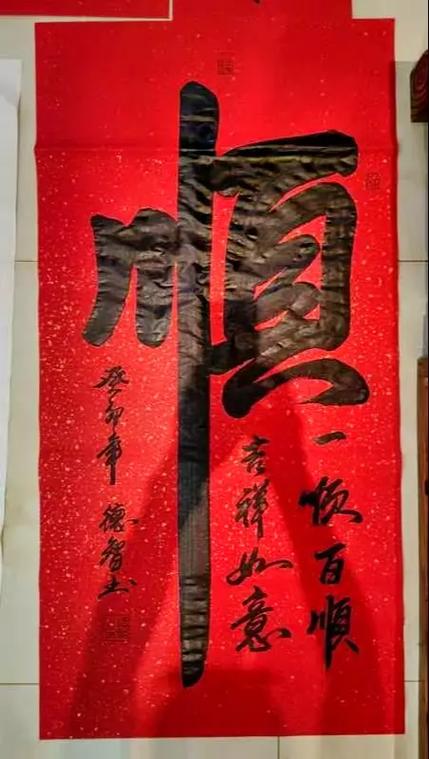 順
一顺百順
吉祥如意
癸卯年 德智书